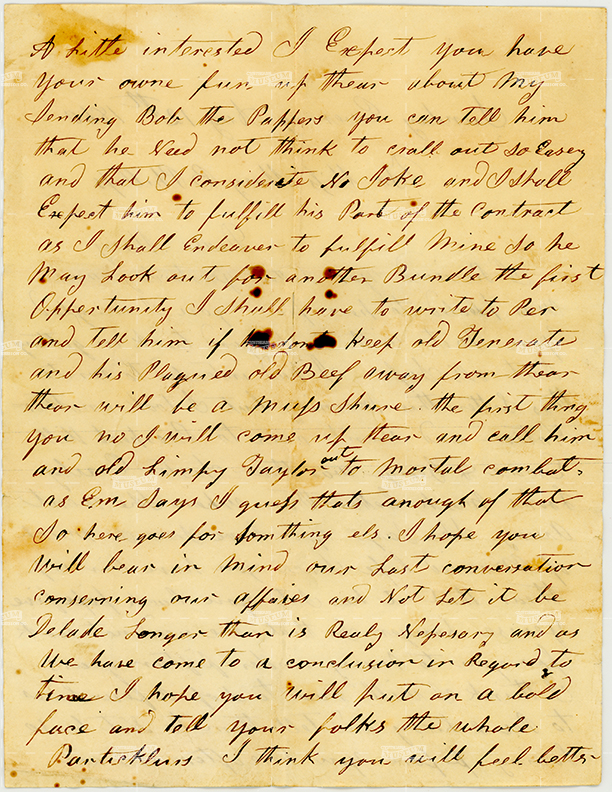 A Little interested I Expect you have
your owne fun up thear about My
Sending Bob the Pappers you can tell him
that he Need not think to crall out so Easey
and that I considerite No Joke and I shall
Expect him to fulfill his Part of the Contract
as I shall Endeaver to fulfill Mine so he
May Look out for another Bundle the first
Oppertunity I shall have to write to Per
and tell him if dont Keep old
and his Plagued old Beef away from thear
thear will be a Muss Shure. the first thing
you no I will come up thear and call him
and old Limpy Taylor out to Mortal combat,
as Em Says I guess thats anough of that
So here goes for Somthing els. I hope you
Will bear in Mind our Last conversation
conserning our affaires and Not Let it be
Delade Longer than is Realy Nepesary and as
We have come to a conclusion in Regard to
time I hope you will put on a bold
face and tell your folks the whole
Particklurs I think you will feel better